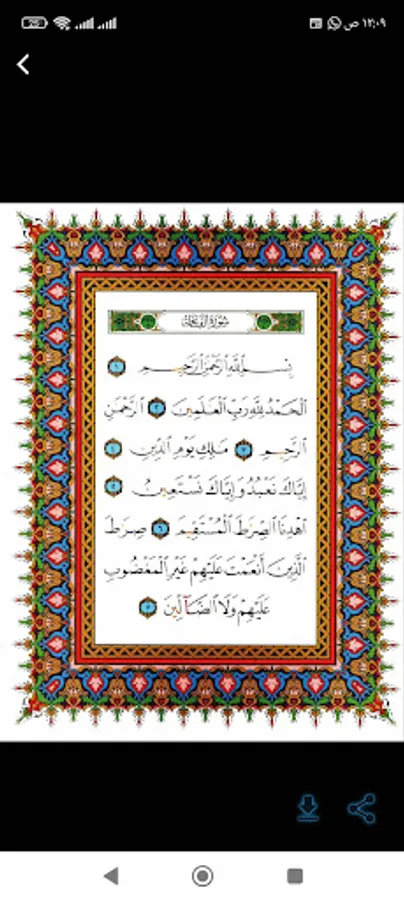 ١٢:٠٩ ص
25
سُورَةُ الفَاتِحَةِ
بِسْمِ ٱللَّهِ ٱلرَّحْمَٰنِ ٱلرَّحِيمِ ١
ٱلْحَمْدُ لِلَّهِ رَبِّ ٱلْعَٰلَمِينَ ٢ ٱلرَّحْمَٰنِ
ٱلرَّحِيمِ ٣ مَٰلِكِ يَوْمِ ٱلدِّينِ ٤
إِيَّاكَ نَعْبُدُ وَإِيَّاكَ نَسْتَعِينُ ٥
ٱهْدِنَا ٱلصِّرَٰطَ ٱلْمُسْتَقِيمَ ٦ صِرَٰطَ
ٱلَّذِينَ أَنْعَمْتَ عَلَيْهِمْ غَيْرِ ٱلْمَغْضُوبِ
عَلَيْهِمْ وَلَا ٱلضَّآلِّينَ ٧